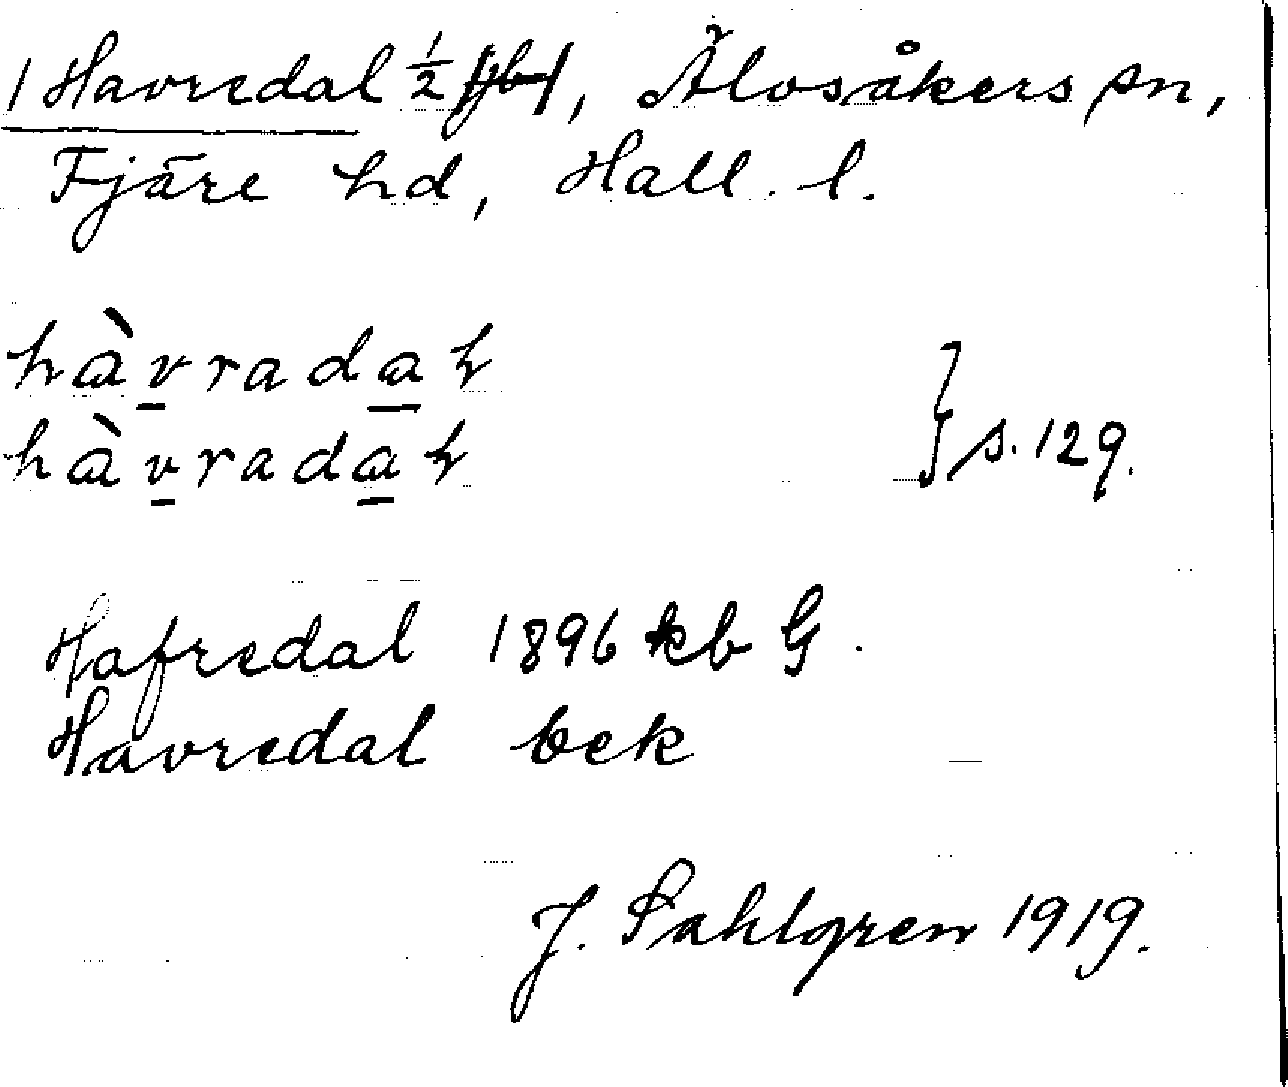 1 Havredal 1/2, Älvsåkers sn,
Fjäre hd, Hall. l.
hàvradał
hàvradał } s. 129.
Hafredal 1896 kb G.
Havredal bek
J. Sahlgren 1919.